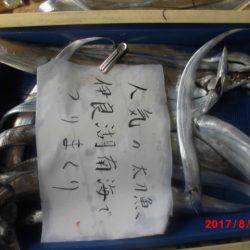 人気の太刀魚、
伊良湖南海で
つりまくり
2017/8/